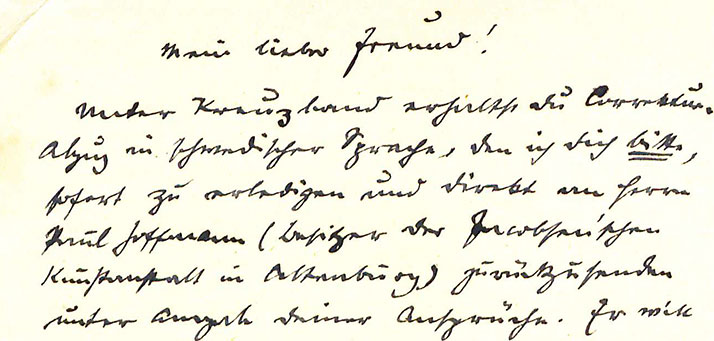 Mein lieber Freund!
Unter Kreuzband erhältst du Correktur-
Abzug in schwedischer Sprache, den ich dich bitte,
sofort zu erledigen und direkt an Herrn
Paul Hoffmann (Besitzer der Jacobsen'schen
Kunstanstalt in Altenburg) zurückzusenden
unter Angabe deiner Ansprüche. Er will